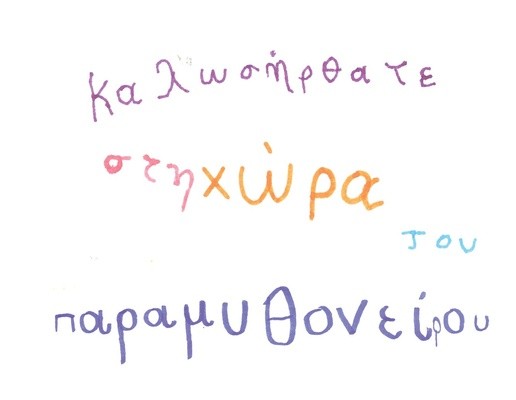 καλωσήρθατε
στη χώρα
του
παραμυθονείρου